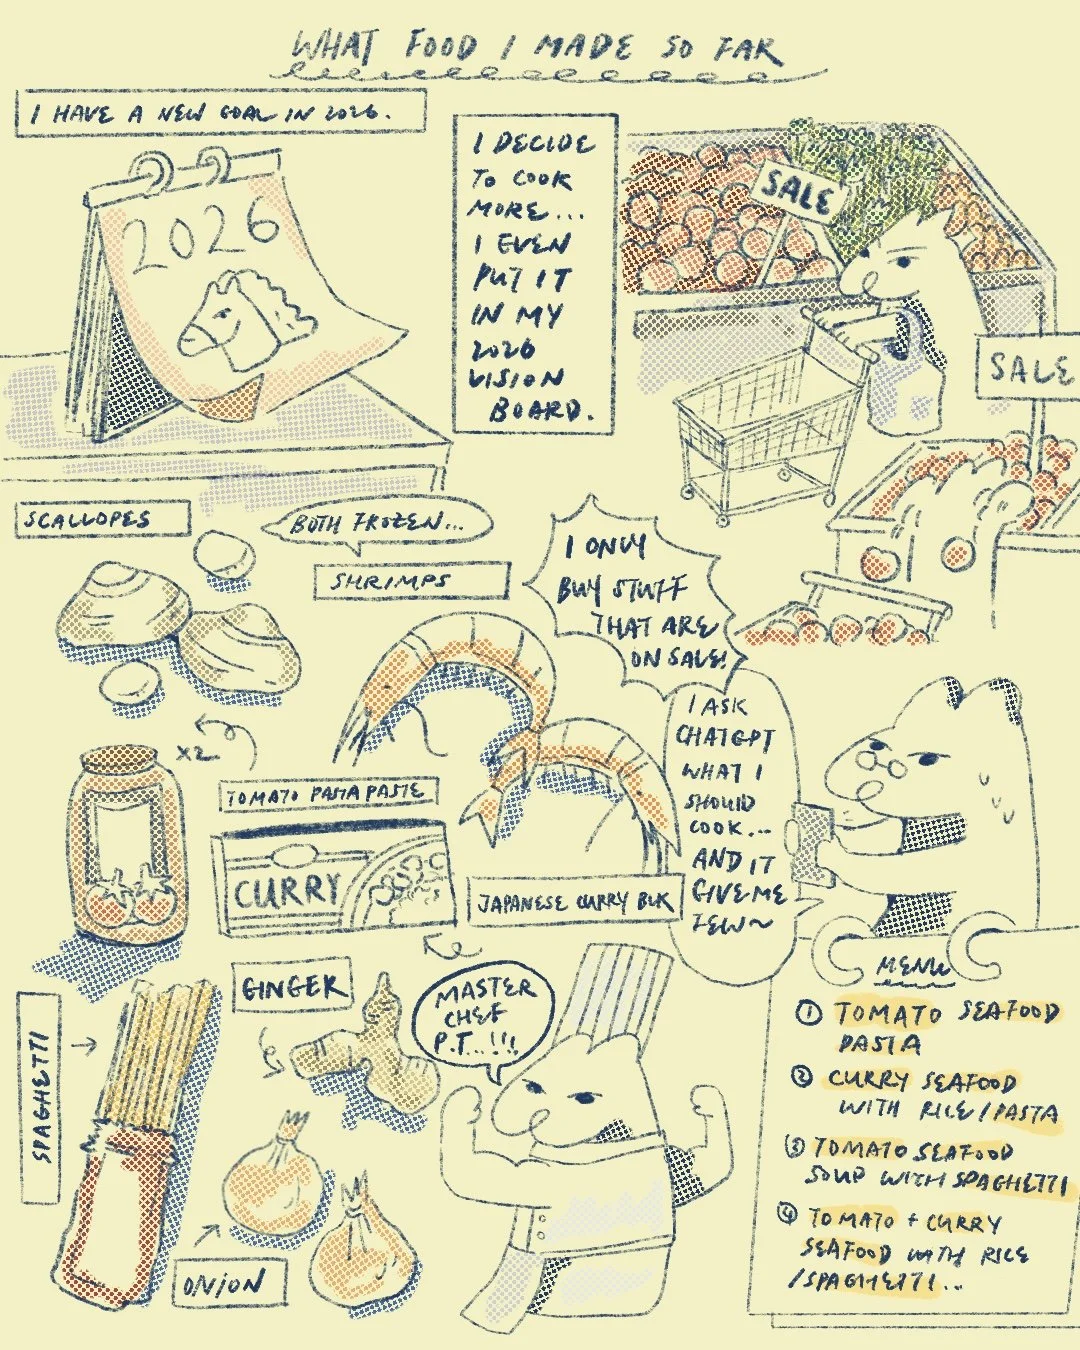 WHAT FOOD I MADE SO FAR
I HAVE A NEW GOAL IN 2026.
2026
I DECIDE
TO COOK
MORE...
I EVEN
PUT IT
IN MY
2026
VISION
BOARD.
SALE
SALE
SCALLOPES
BOTH FROZEN...
SHRIMPS
I ONLY
BUY STUFF
THAT ARE
ON SALE!
X2
TOMATO PASTA PASTE
CURRY
JAPANESE CURRY BLK
I ASK
CHATGPT
WHAT I
SHOULD
COOK...
AND IT
GIVE ME
FEW~
SPAGHETTI
GINGER
ONION
MASTER
CHEF
P.T...!!!
MENU
① TOMATO SEAFOOD
PASTA
② CURRY SEAFOOD
WITH RICE / PASTA
③ TOMATO SEAFOOD
SOUP WITH SPAGHETTI
④ TOMATO + CURRY
SEAFOOD WITH RICE
/SPAGHETTI...